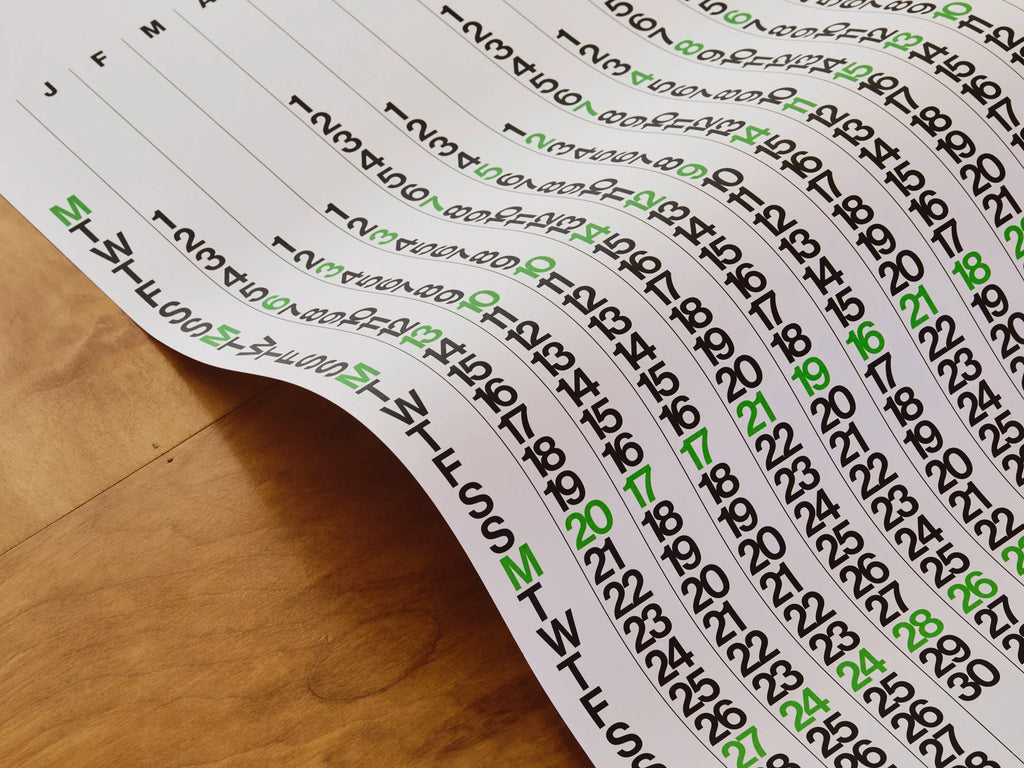 M T W T F S S M T W T F S S M T W T F S S M T W T F S
J 1 2 3 4 5 6 7 8 9 10 11 12 13 14 15 16 17 18 19 20 21 22 23 24 25 26 27
F 1 2 3 4 5 6 7 8 9 10 11 12 13 14 15 16 17 18 19 20 21 22 23 24 25 26
M 1 2 3 4 5 6 7 8 9 10 11 12 13 14 15 16 17 18 19 20 21 22 23 24 25 26 27 28
A 1 2 3 4 5 6 7 8 9 10 11 12 13 14 15 16 17 18 19 20 21 22 23 24 25 26 27 28 29 30
1 2 3 4 5 6 7 8 9 10 11 12 13 14 15 16 17 18 19 20 21 22 23 24 25 26 27
1 2 3 4 5 6 7 8 9 10 11 12 13 14 15 16 17 18 19 20 21 22
1 2 3 4 5 6 7 8 9 10 11 12 13 14 15 16 17 18 19 20 21 22 23 24 25
1 2 3 4 5 6 7 8 9 10 11 12 13 14 15 16 17 18 19 20
5 6 7 8 9 10 11 12 13 14 15 16 17 18 19 20 21
5 6 7 8 9 10 11 12 13 14 15 16 17
10 11 12